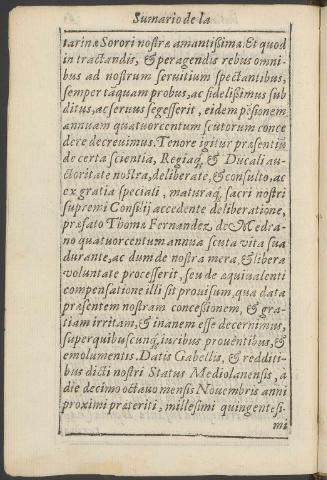 Sumario de la
tarinæ Sorori nostræ amantissimæ. Et quod
in tractandis, & peragendis rebus omni-
bus ad nostrum seruitium spectantibus,
semper tãquam probus, ac fidelissimus sub
ditus, ac seruus se gesserit, eidem pẽsionem
annuam quatuorcentum scutorum conce
dere decreuimus. Tenore igitur præsentiũ
de certa scientia, Regiaq̃, & Ducali au-
ctoritate nostra, deliberate, & consulto, ac
ex gratia speciali, maturaq̃, sacri nostri
supremi Consilij accedente deliberatione,
præfato Thomæ Fernandez de Medra-
no quatuorcentum annua scuta vita sua
durante, ac dum de nostra mera, & libera
voluntate processerit, seu de æquiualenti
compensatione illi sit prouisum, qua data
præsentem nostram concessionem, & gra-
tiam irritam, & inanem esse decernimus,
superquibuscunq̃, iuribus prouentibus, &
emolumentis. Datis Gabellis, & redditi-
bus dicti nostri Status Mediolanensis, a
die decimo octauo mensis Nouembris anni
proximi præteriti, millesimi quingentesi-
mi